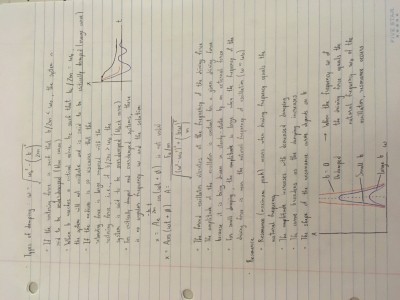 Types of damping → ω = √(ω₀² - (b/2m)²)
• If the restoring force is such that b/2m < ω₀, the system is
said to be underdamped (thick line)
• When b reaches a critical value bc such that bc/2m = ω₀,
the system will not oscillate and is said to be critically damped
• If the medium is so viscous that the
retarding force is large compared with the
restoring force and if b/2m > ω₀, the
system is said to be overdamped
• For critically damped and overdamped systems, there
is no angular frequency ω and the solution
is not valid
• The forced oscillator vibrates at the frequency of the driving force
• The amplitude of the oscillator is constant for a given driving force
because it is being driven in steady state by an external force
• For small damping, the amplitude is large when the frequency of the
driving force is near the natural frequency of oscillation
Resonance
• Resonance (maximum peak) occurs when driving frequency equals the
natural frequency
• The amplitude increases with decreased damping
• The curve broadens as the damping increases
• The shape of the resonance curve depends on b
b = 0
Undamped
Small b
Large b
ω
→ When the frequency ω of
the driving force equals the
natural frequency ω₀ of the
oscillator, resonance occurs